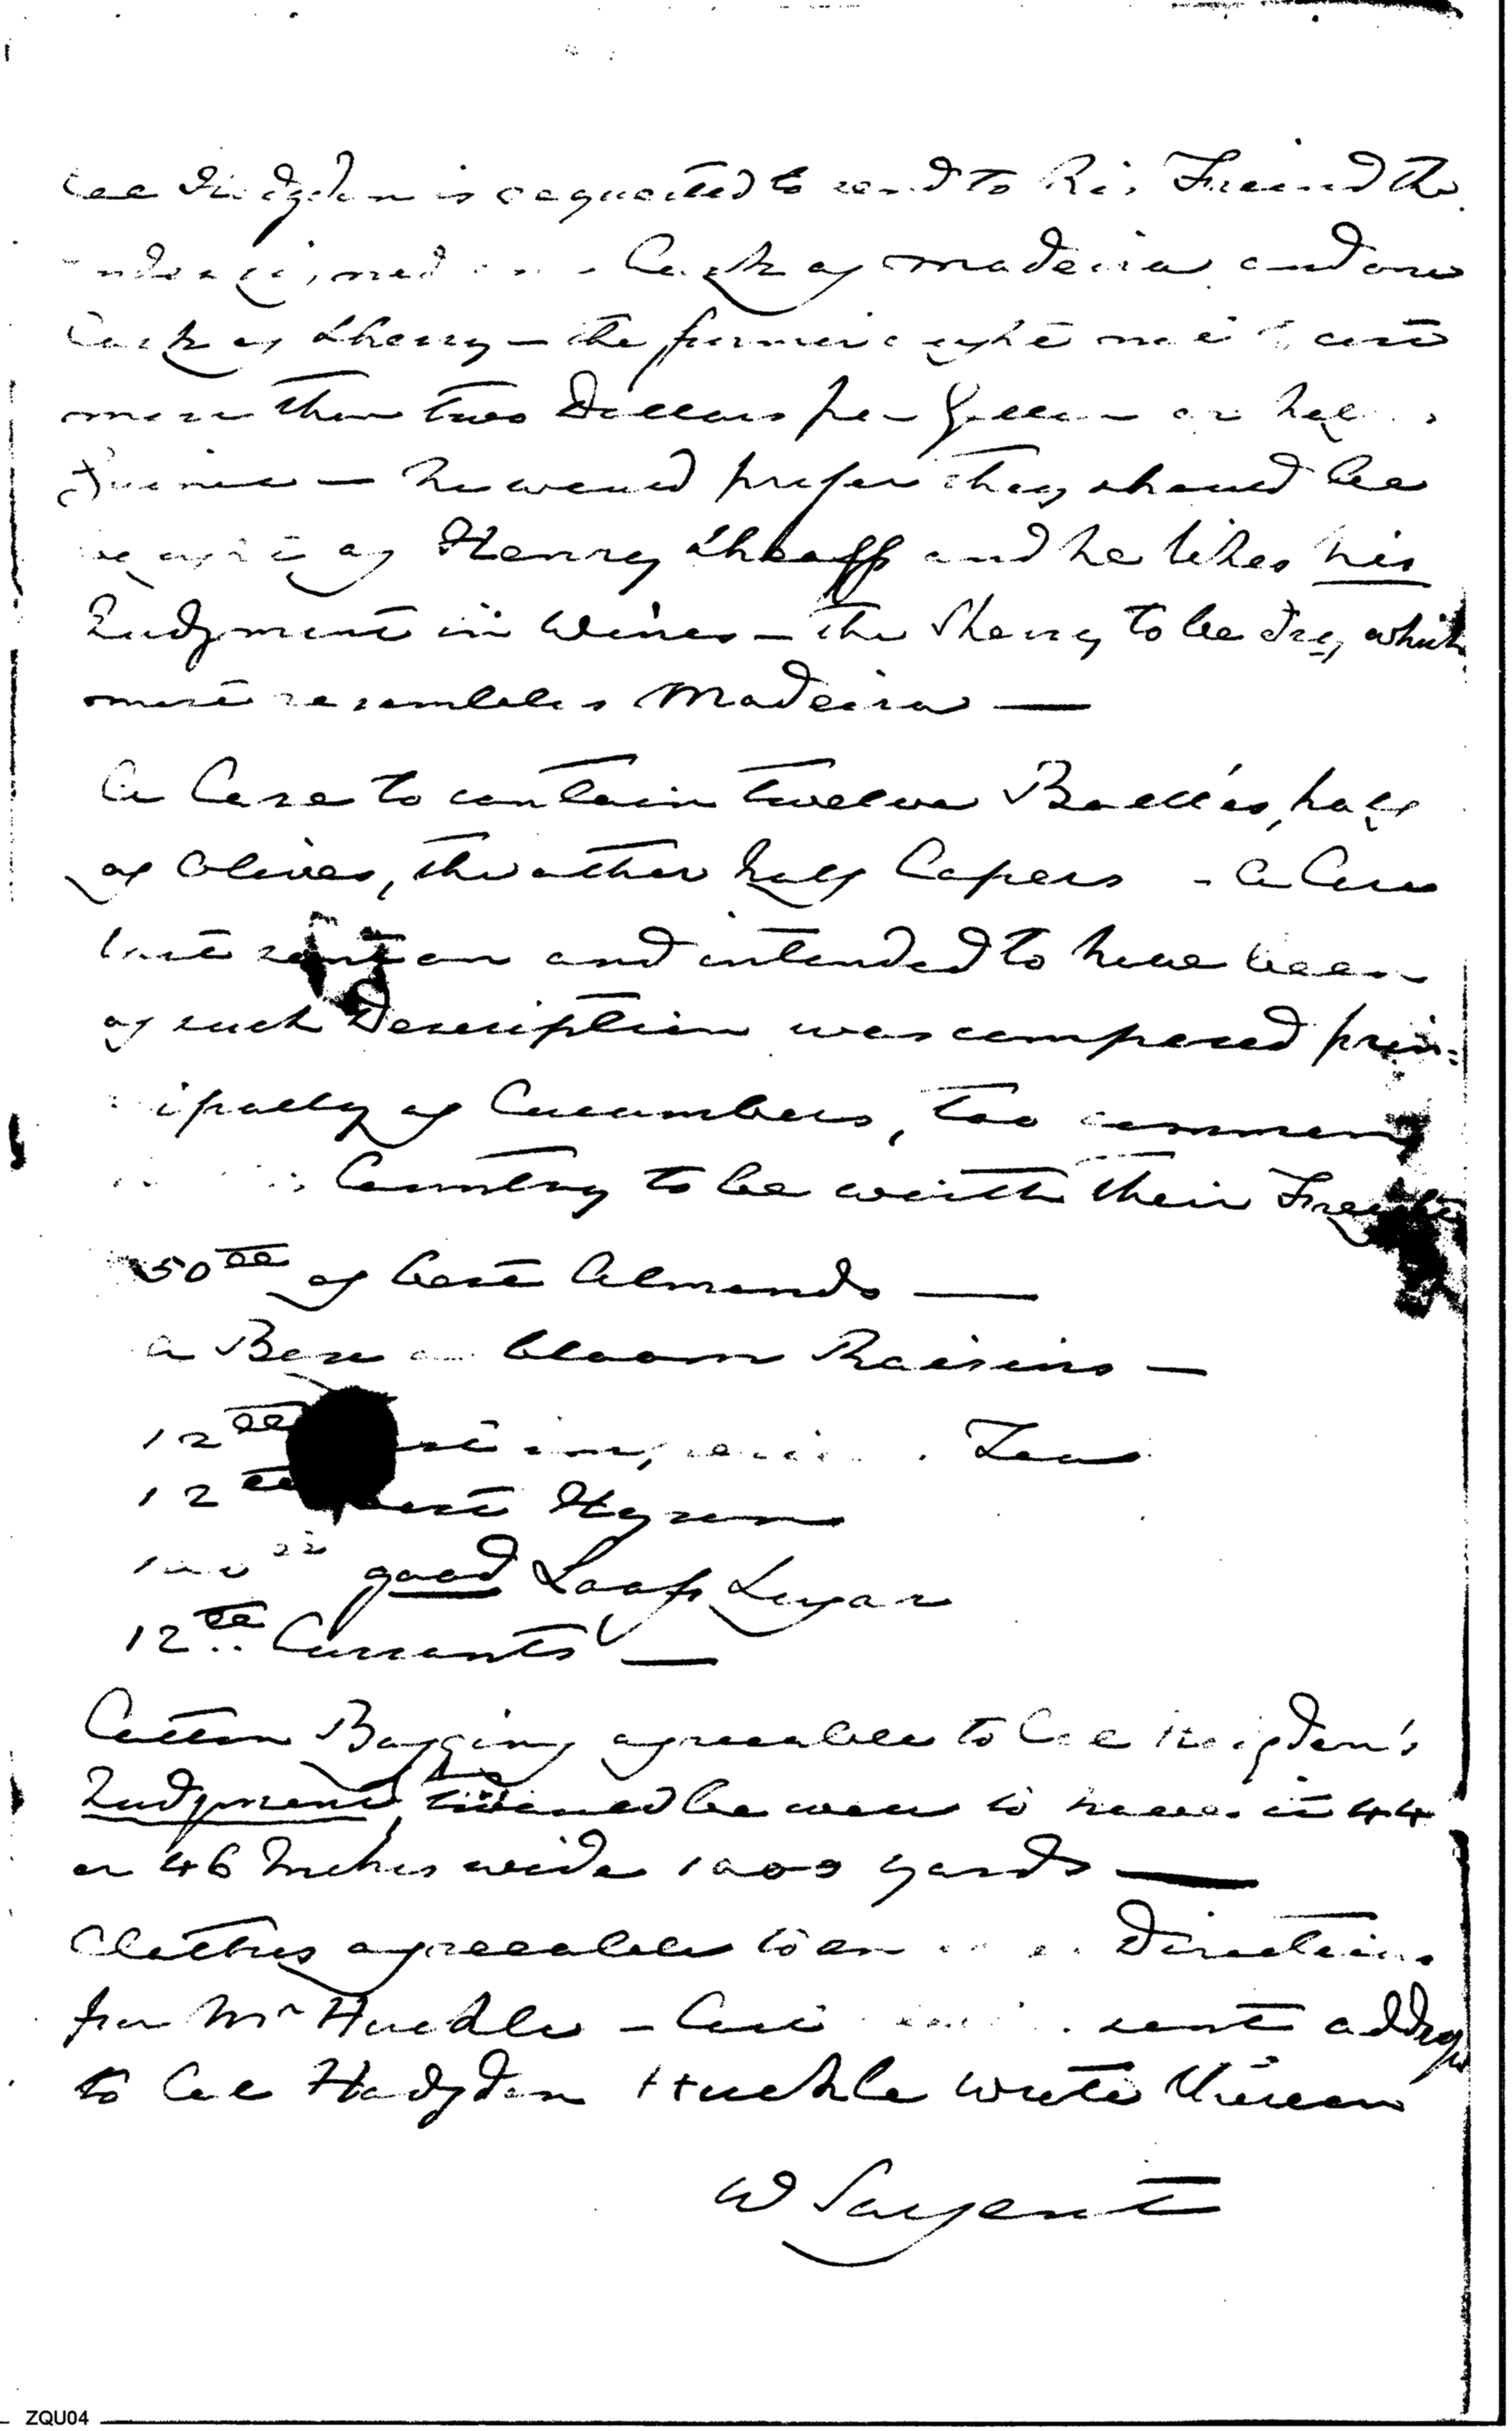 Col Hodgdon is requested to send to his Freind the
Cask of Madeira and one
Cask of Sherry — the former ought not to cost
more than two Dollars per Gallon or half
he woud prefer they shoud be
of Henry Sheaff and he likes his
Judgment in Wines — the Sherry to be dry, which
most resembles Madeira —
A Case to contain twelve Bottles, half
of Olives, the other half Capers - A Case
last sent on and intended to have been
of such Description was composed prin:
cipally of Cucumbers, too common
Country to be worth their Freight
50 ll of best Almonds —
a Box bloom Raisins —
12 ll Tea
12 ll best Hyson
100 ll good Loaf Sugar
12 ll Currants —
Cotton Bagging agreeable to Col Hodgdon's
Judgment, woud be well to have it 44
or 46 Inches wide 1000 yards —
Clothes agreeable to Directions
for Mr Huckle — sent address
to Col Hodgdon Huckle wrote thereon
W Sargent
ZQU04